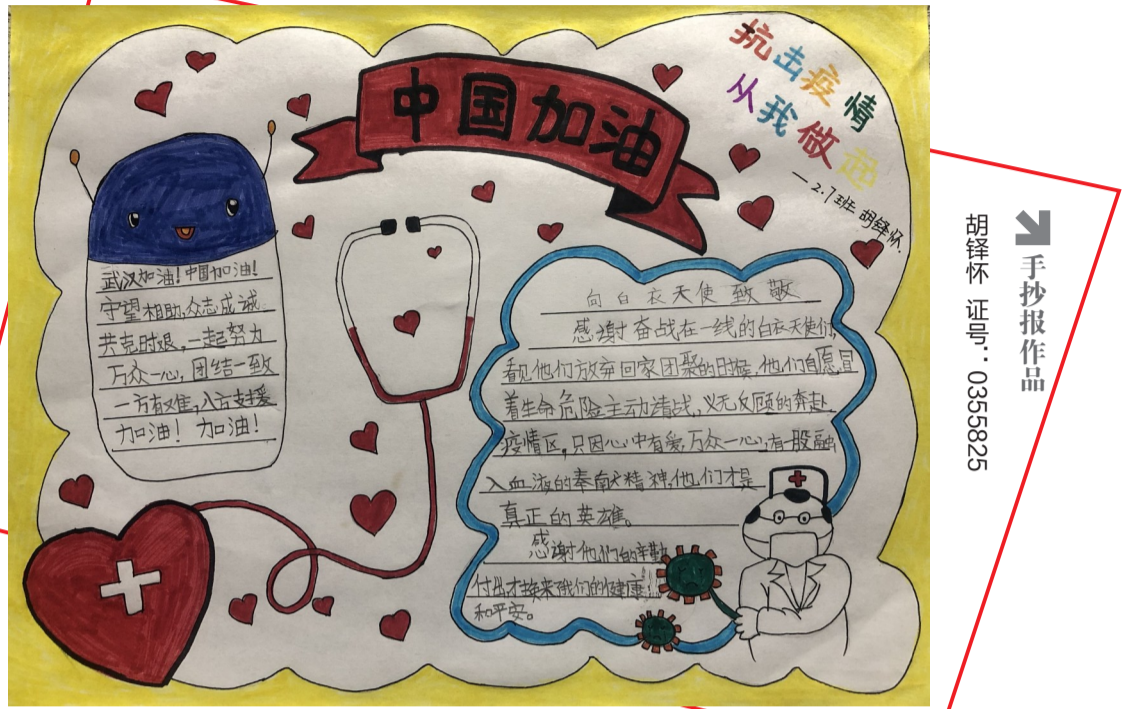 中国加油
抗击疫情
从我做起
一2.7班 胡铎怀.
武汉加油!中国加油!
守望相助,众志成诚
共克时艰,一起努力
万众一心,团结一致
一方有难,八方支援
加油!加油!
向白衣天使致敬
感谢奋战在一线的白衣天使们,
看见他们放弃回家团聚的日候,他们自愿冒
着生命危险主动请战,义无反顾的奔赴
疫情区,只因心中有爱,万众一心,有一股融
入血液的奉献精神,他们才是
真正的英雄。
感谢他们的辛勤
付出才换来我们的健康
和平安。
手抄报作品
胡铎怀 证号:0355825